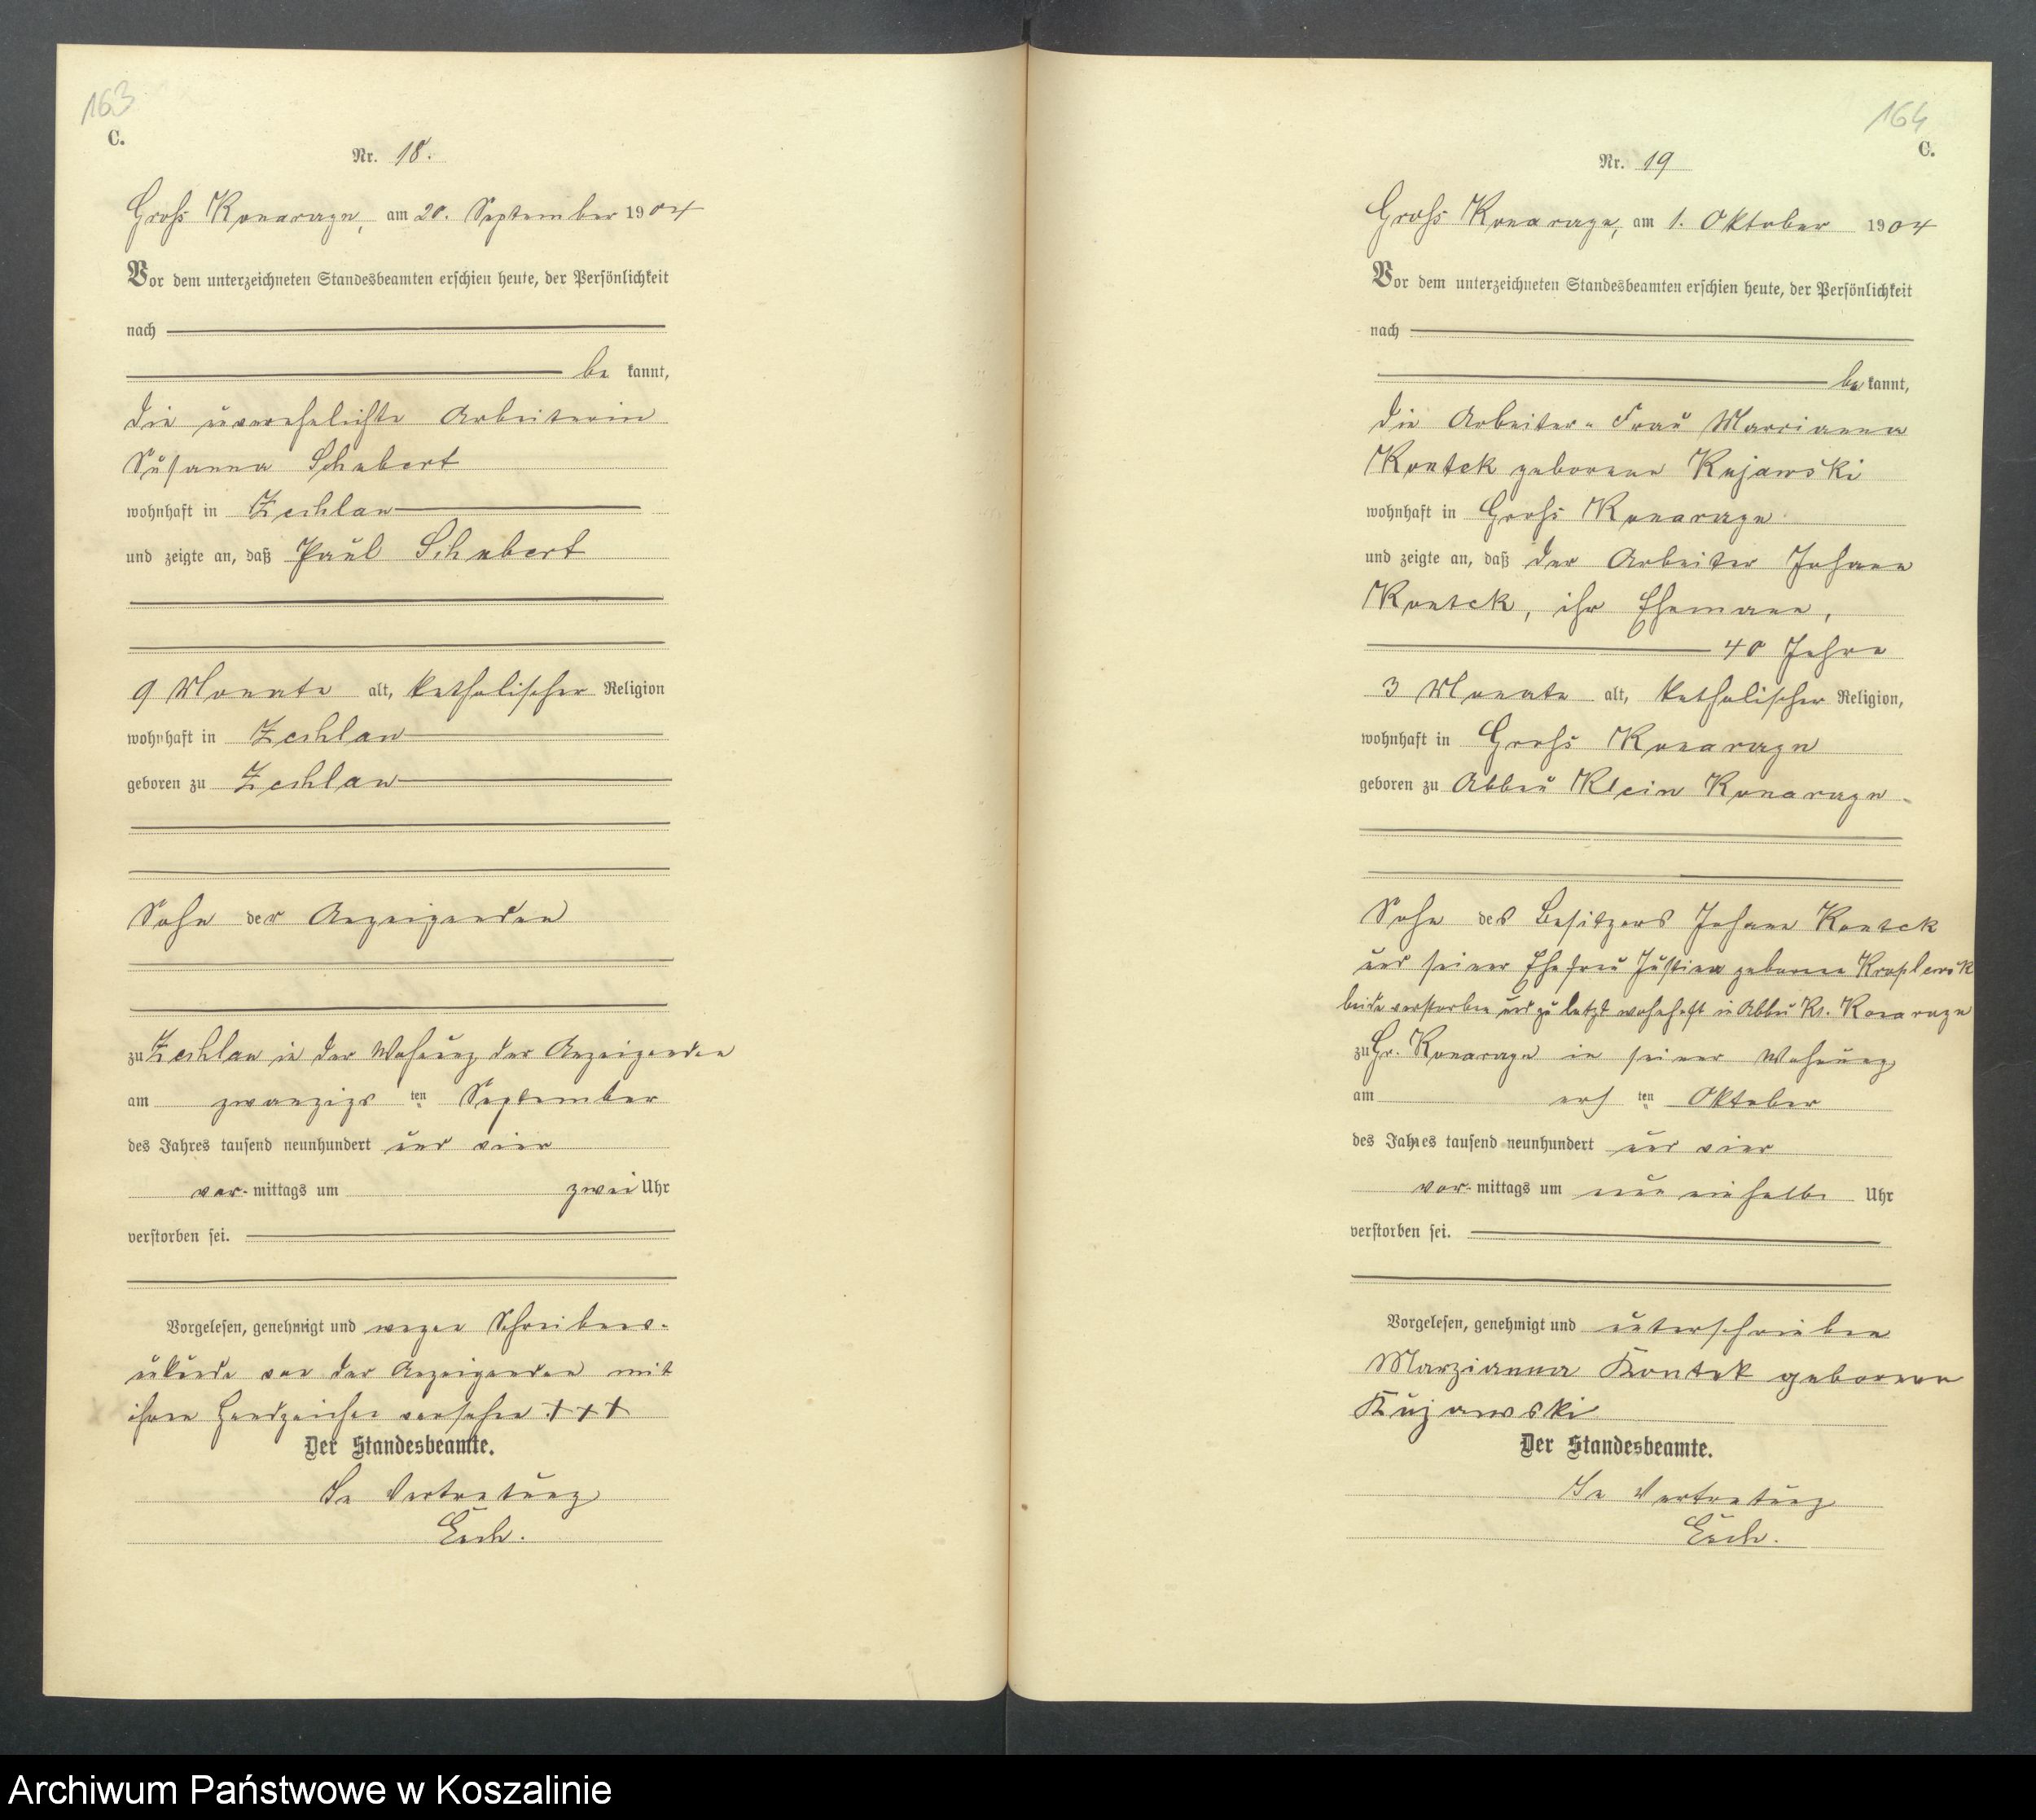 163
C.
Nr. 18.
Groß Konarzyn, am 20. September 1904
Vor dem unterzeichneten Standesbeamten erschien heute, der Persönlichkeit
nach
be kannt,
die unverehelichte Arbeiterin
Susanna Schubert
wohnhaft in Zechlau
und zeigte an, daß Paul Schubert
9 Monate alt, katholischer Religion
wohnhaft in Zechlau
geboren zu Zechlau
Sohn der Anzeigenden
zu Zechlau in der Wohnung der Anzeigenden
am zwanzigs ten September
des Jahres tausend neunhundert und vier
vor-mittags um zwei Uhr
verstorben sei.
Vorgelesen, genehmigt und wegen Schreibens-
unkunde von der Anzeigenden mit
ihren Handzeichen versehen +++
Der Standesbeamte.
In Vertretung
164
C.
Nr. 19
Groß Konarzyn, am 1. Oktober 1904
Vor dem unterzeichneten Standesbeamten erschien heute, der Persönlichkeit
nach
be kannt,
die Arbeiter-Frau Marrianna
Kontek geborene Kujawski
wohnhaft in Groß Konarzyn
und zeigte an, daß der Arbeiter Johann
Kontek, ihr Ehemann,
40 Jahre
3 Monate alt, katholischer Religion,
wohnhaft in Groß Konarzyn
geboren zu Abbau Klein Konarzyn
Sohn des Besitzers Johann Kontek
und seiner Ehefrau Justina geborene
beide verstorben und zu letzt wohnhaft in Abbau Kl. Konarzyn
zu Gr. Konarzyn in seiner Wohnung
am ers ten Oktober
des Jahres tausend neunhundert und vier
vor-mittags um neun einhalb Uhr
verstorben sei.
Vorgelesen, genehmigt und unterschrieben
Marzianna Kontek geborene
Kujawski
Der Standesbeamte.
In Vertretung
Archiwum Państwowe w Koszalinie